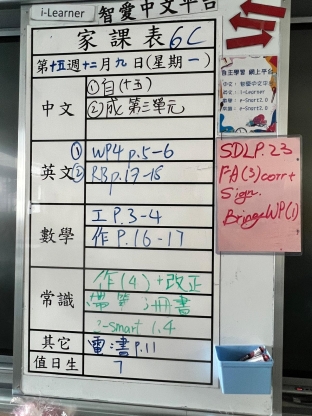 i-Learner 智愛中文平台
家課表 6C
第十五週十二月九日(星期一)
中文
①自(十五)
②成 第三單元
英文
① WP4 p.5-6
② RB p.17-18
數學
工 P.3-4
作 P.16-17
常識
作(4)+改正
帶管 冊書
i-smart 1.4
其它
電 書 p.11
值日生
7
自主學習 網上平台
中文: 智愛中文平台
英文: i-Learner
數學: e-Smart2.0
常識: e-Smart2.0
SDL P.23
PA(3) corr +
Sign.
Bring WP(1)